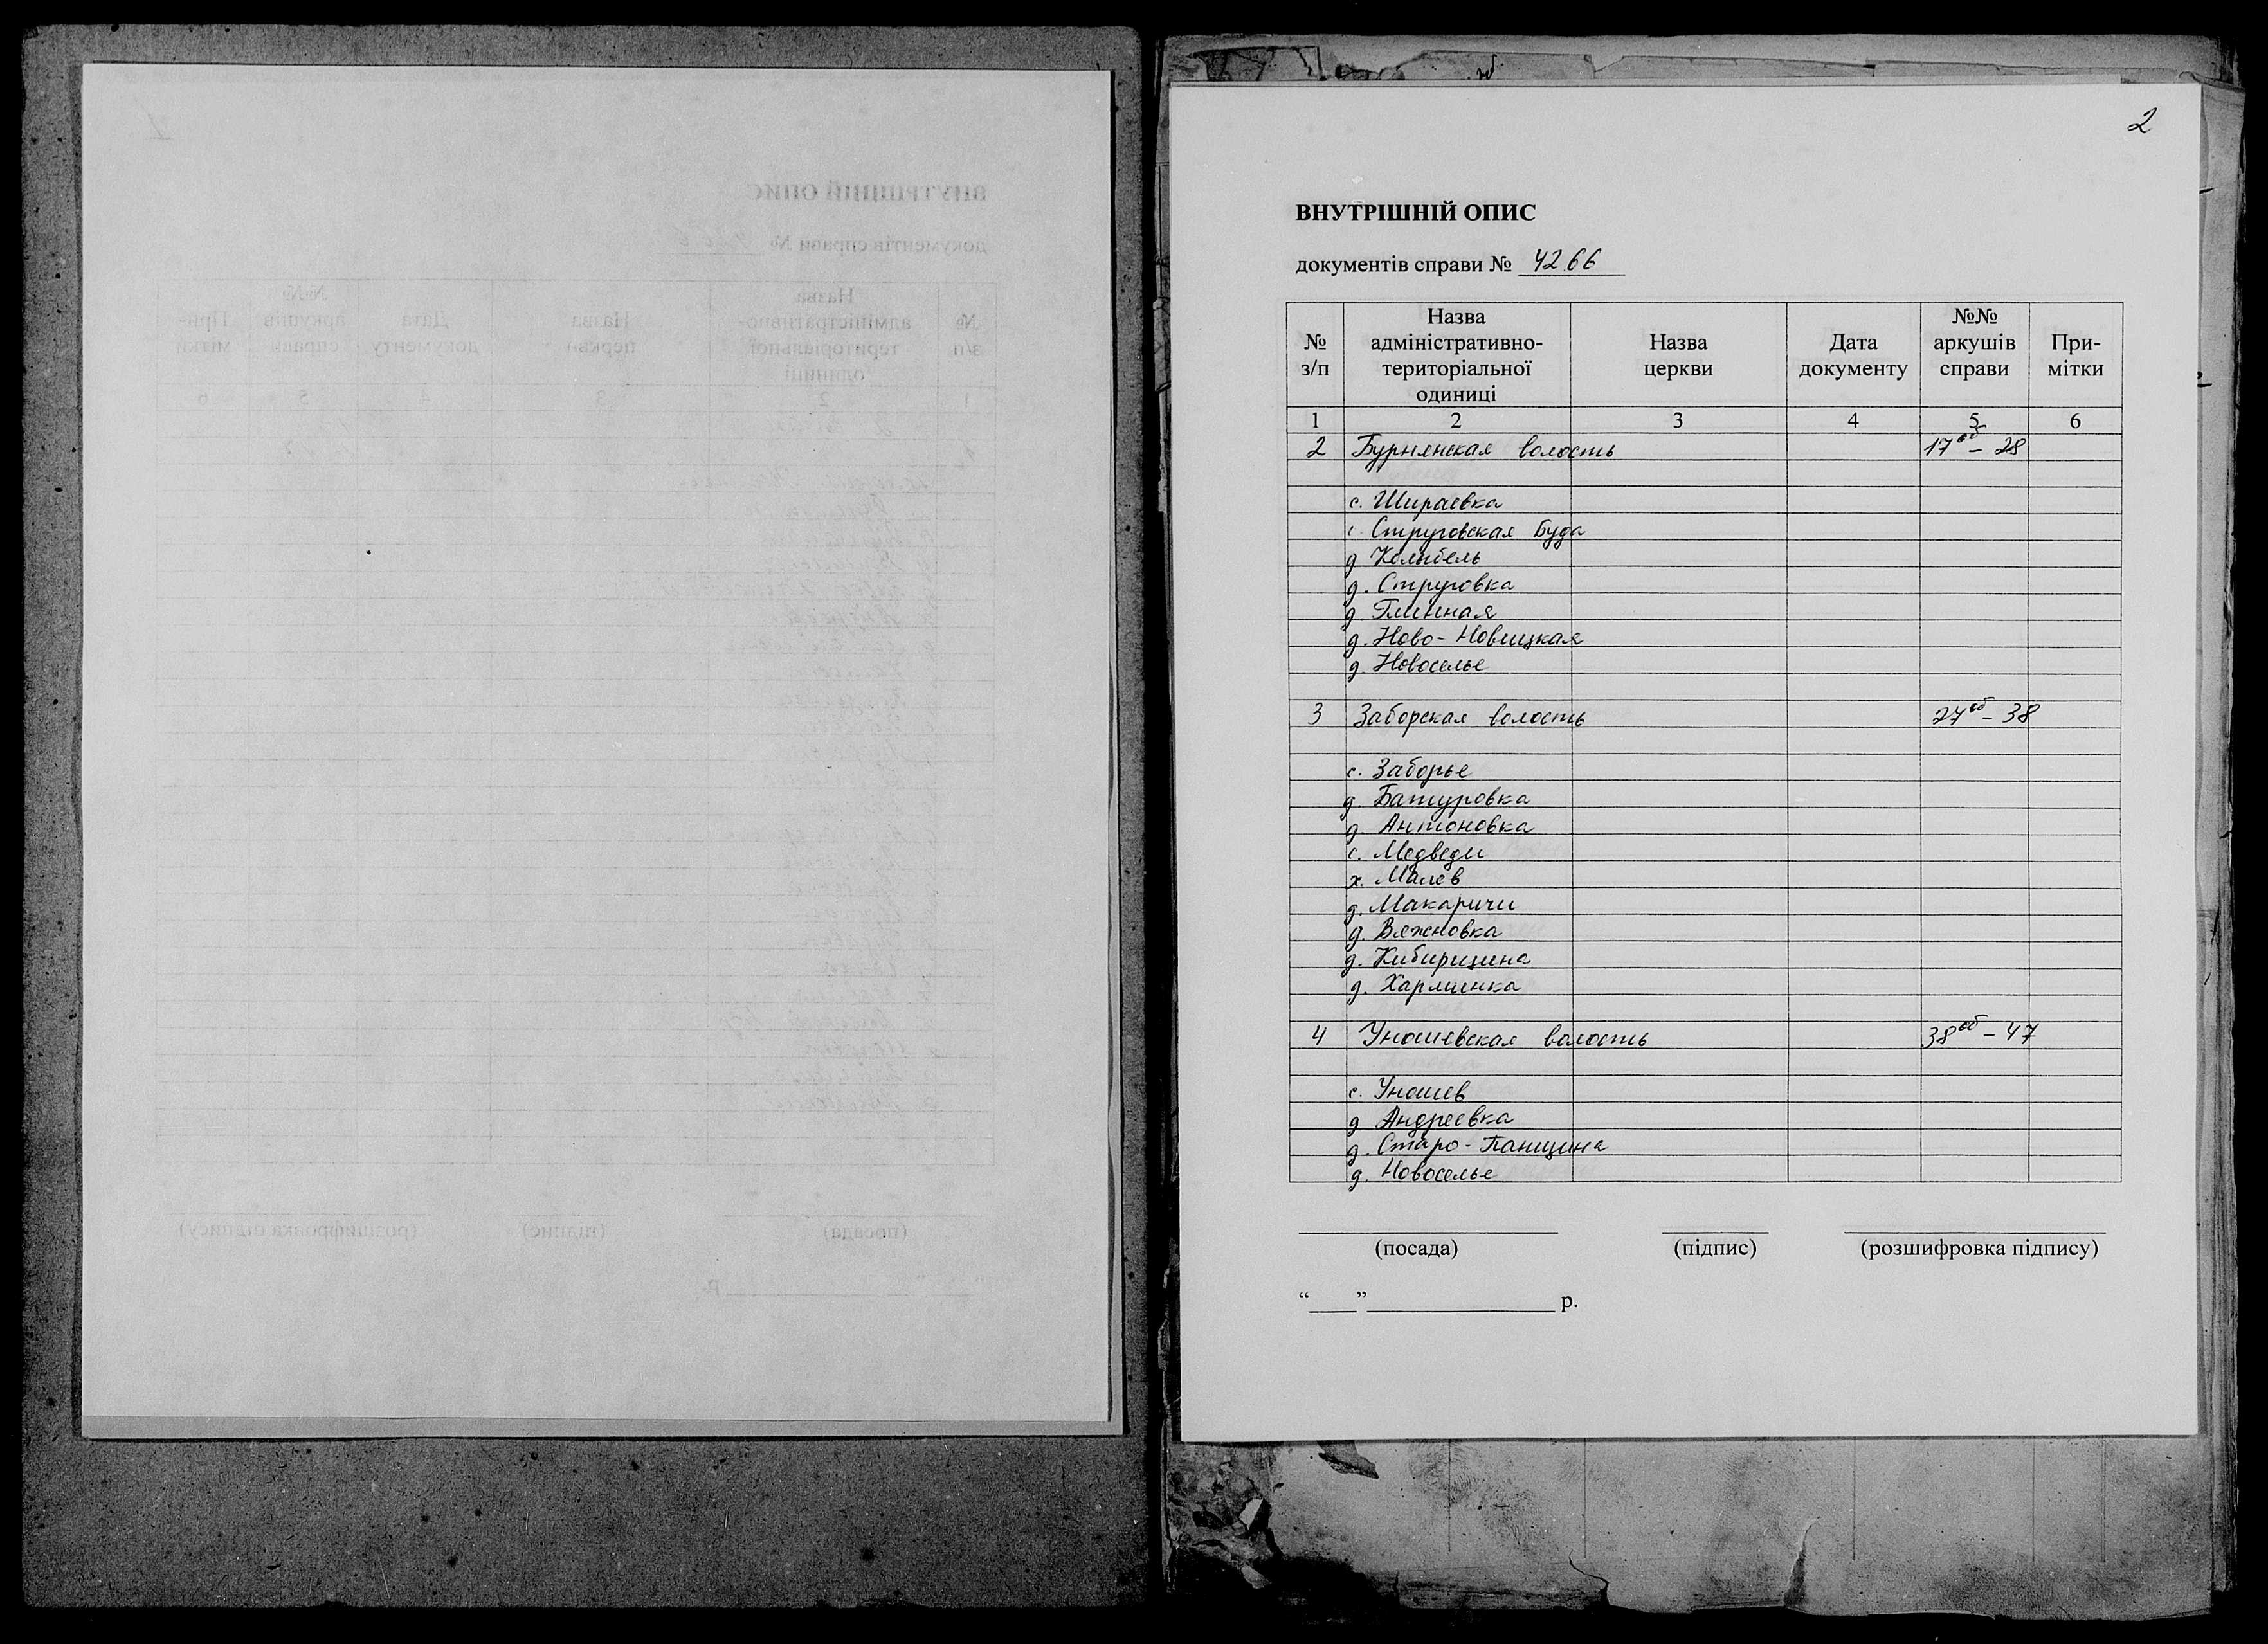 2
ВНУТРІШНІЙ ОПИС
документів справи № 4266
№ з/п | Назва адміністративно-територіальної одиниці | Назва церкви | Дата документу | №№ аркушів справи | При-мітки
1 2 3 4 5 6
2 Бурнянская волость 17об – 28
с. Шираевка
с. Струговская Буда
д. Колыбель
д. Струговка
д. Глинная
д. Ново-Новицкая
д. Новоселье
3 Заборская волость 27об – 38
с. Заборье
д. Батуровка
д. Антоновка
с. Медведи
х. Малев
д. Макаричи
д. Вяжновка
д. Кибирщина
д. Харминка
4 Уношевская волость 38об – 47
с. Уношев
д. Андреевка
д. Старо-Панщина
д. Новоселье
(посада) (підпис) (розшифровка підпису)
“____”________________ р.